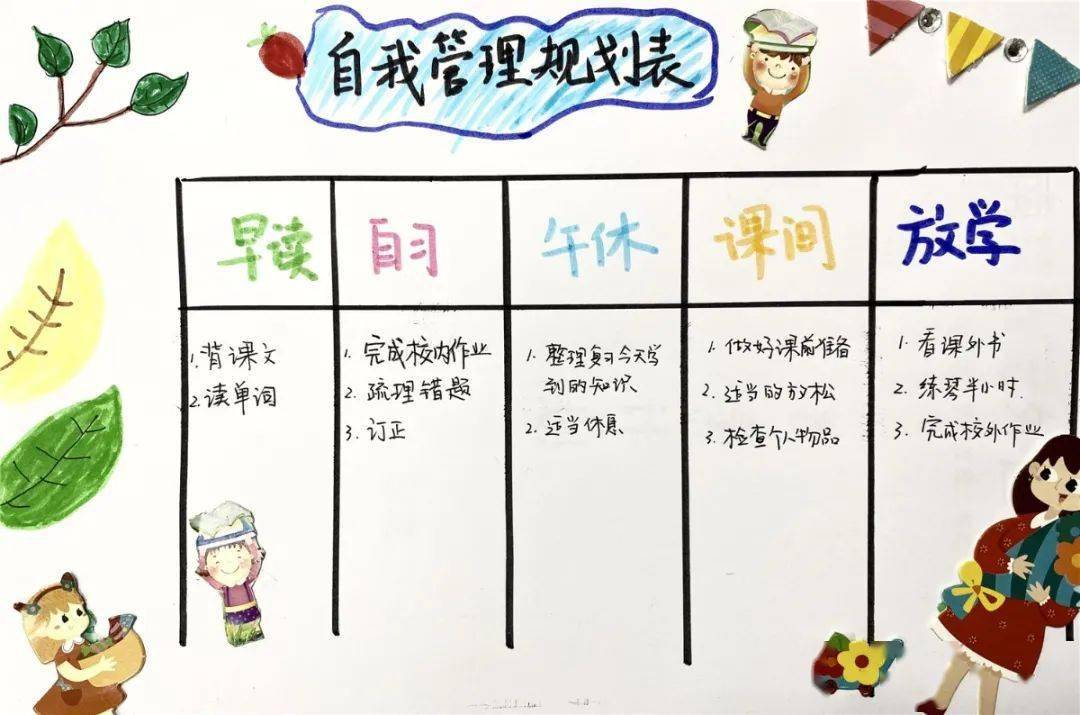 自我管理规划表
早读
自习
午休
课间
放学
1.背课文
2.读单词
1. 完成校内作业
2. 疏理错题
3. 订正
1. 整理复习今天学
到的知识
2. 适当休息
1. 做好课前准备
2. 适当的放松
3. 检查个人物品
1. 看课外书
2. 练琴半小时.
3. 完成校外作业